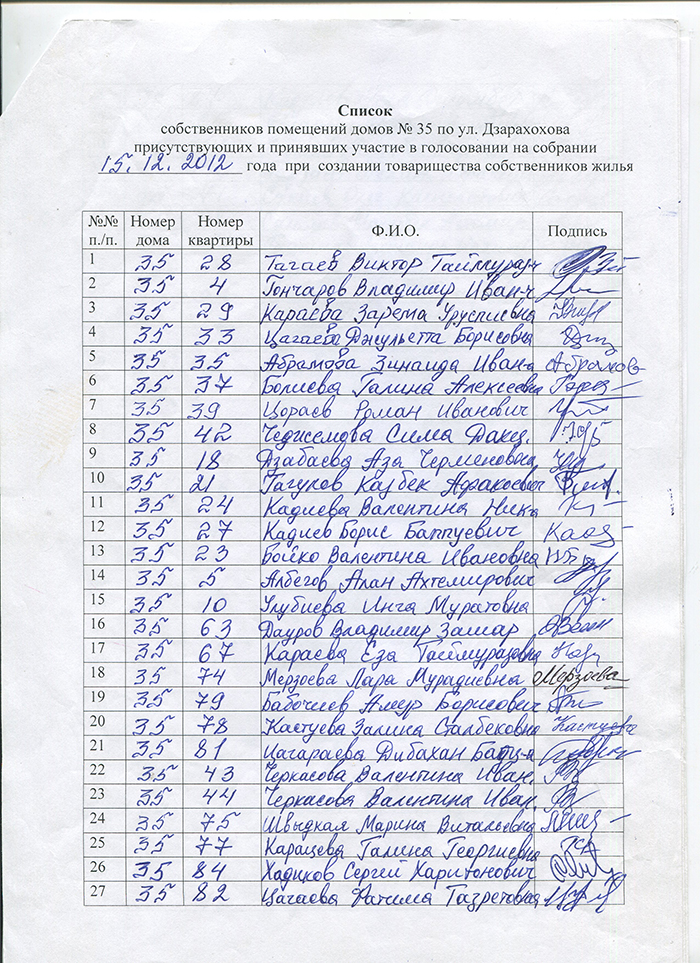 Список
собственников помещений домов № 35 по ул. Дзарахохова
присутствующих и принявших участие в голосовании на собрании
15.12.2012 года при создании товарищества собственников жилья
№№ п./п. Номер дома Номер квартиры Ф.И.О. Подпись
1 35 28 Тагаев Виктор Таймураз
2 35 4 Гончаров Владимир Иван-ч
3 35 29 Караева Зарема Уруспиевна
4 35 33 Цагаева Джульетта Борисовна
5 35 35 Абрамова Зинаида Иван-а Абрамова
6 35 37 Болиева Галина Алексеевна
7 35 39 Цораев Роман Иванович
8 35 42 Сима
9 35 18 Дзабаева Аза Черменовна
10 35 21 Гагулов Казбек
11 35 24 Кадиева Валентина Ник-а
12 35 27 Кадиев Борис
13 35 23 Бойко Валентина Ивановна
14 35 5 Албегов Алан Ахтемирович
15 35 10 Улубиева Инга Муратовна
16 35 63 Дауров Владимир
17 35 67 Караева Еза Таймуразовна
18 35 74 Мерзоева Лара Мурадиевна Мерзоева
19 35 79 Бабочиев Амур Борисович
20 35 78 Кастуева Залина Сталбековна Кастуева
21 35 81 Цагараева Дибахан
22 35 43 Черкасова Валентина Иван.
23 35 44 Черкасова Валентина Иван.
24 35 75 Швыдкая Марина Витальевна
25 35 77 Карацева Галина Георгиевна
26 35 84 Хадиков Сергей Харитонович
27 35 82 Цагаева Фатима Газретовна